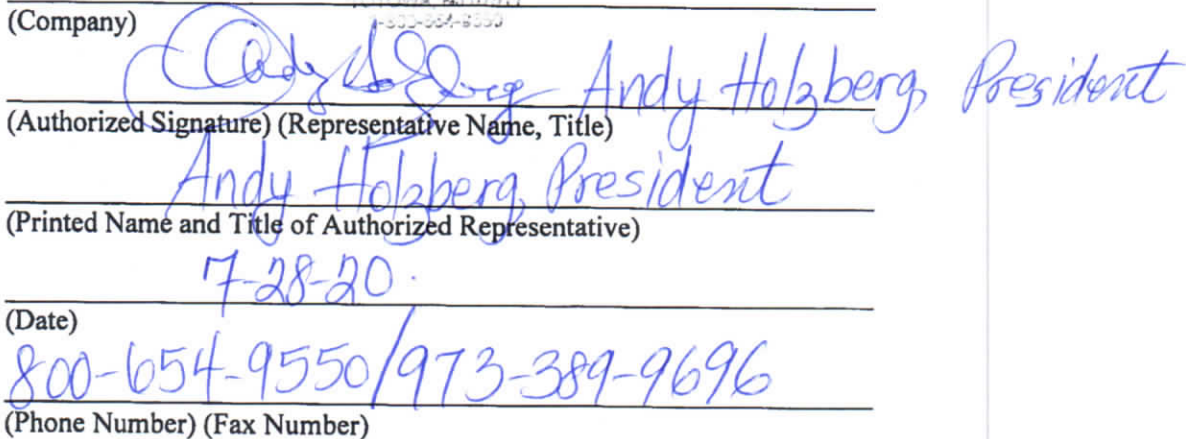 (Company)
Andy Holzberg Andy Holzberg, President
(Authorized Signature) (Representative Name, Title)
Andy Holzberg, President
(Printed Name and Title of Authorized Representative)
7-28-20.
(Date)
800-654-9550/973-389-9696
(Phone Number) (Fax Number)